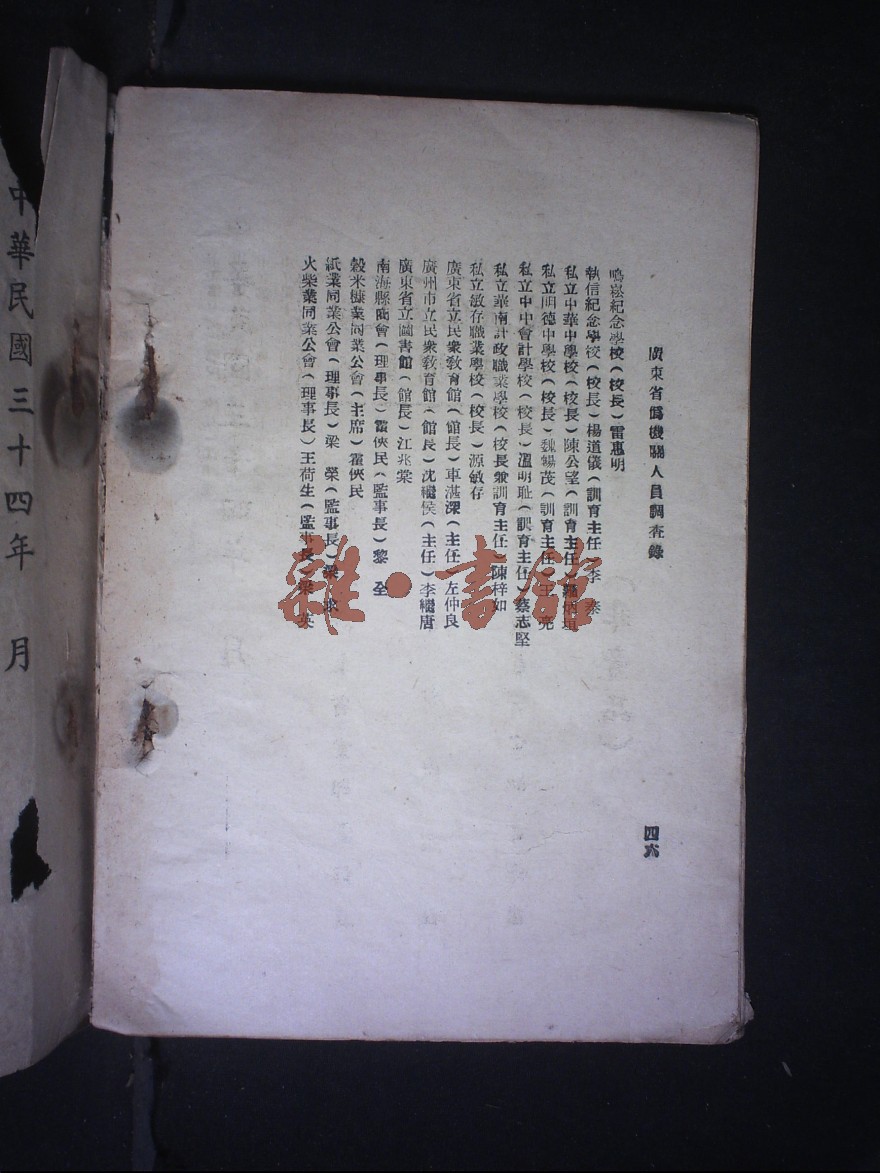 廣東省僞機關人員調查錄
四六
鳴崧紀念學校(校長)雷惠明
執信紀念學校(校長)楊道儀(訓育主任)李
私立中華中學校(校長)陳公望(訓育主任)
私立明德中學校(校長)魏暢茂(訓育主任)王亮
私立中中會計學校(校長)溫明耻(訓育主任)蔡志堅
私立華南計政職業學校(校長兼訓育主任)陳梓如
私立敏存職業學校(校長)源敏存
廣東省立民衆敎育館(館長)車湛深(主任)左仲良
廣州市立民衆敎育館(館長)沈繼侯(主任)李繼唐
廣東省立圖書館(館長)江兆棠
南海縣商會(理事長)霍俠民(監事長)黎 全
穀米糠業同業公會(主席)霍俠民
紙業同業公會(理事長)梁 榮(監事長)梁
火柴業同業公會(理事長)王荷生(監事長)梁 英
中華民國三十四年 月
雜·書館